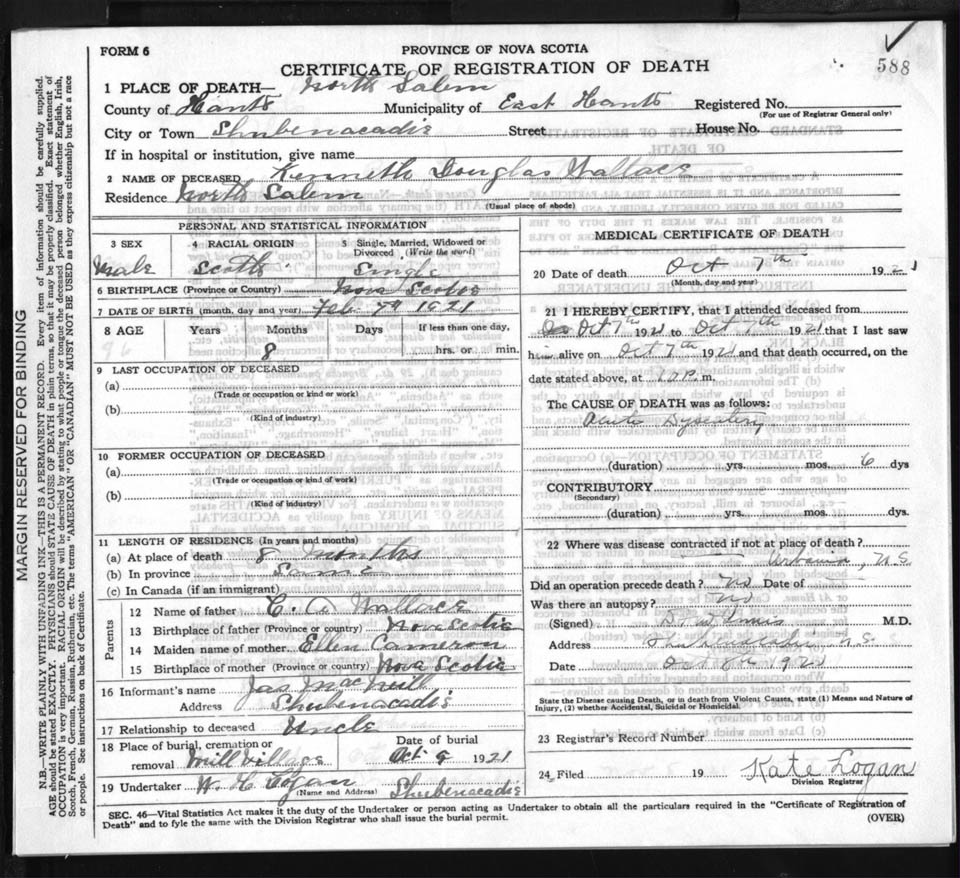 FORM 6
PROVINCE OF NOVA SCOTIA
588
CERTIFICATE OF REGISTRATION OF DEATH
1 PLACE OF DEATH— North Salem
County of Hants Municipality of East Hants Registered No.
(For use of Registrar General only)
City or Town Shubenacadie Street House No.
If in hospital or institution, give name
2 NAME OF DECEASED Kenneth Douglas Wallace
Residence North Salem
(Usual place of abode)
PERSONAL AND STATISTICAL INFORMATION
3 SEX 4 RACIAL ORIGIN 5 Single, Married, Widowed or Divorced (Write the word)
Male Scotch Single
6 BIRTHPLACE (Province or Country) Nova Scotia
7 DATE OF BIRTH (month, day and year) Feb 7th 1921
8 AGE Years Months Days If less than one day,
8 hrs. or min.
9 LAST OCCUPATION OF DECEASED
(a)
(Trade or occupation or kind or work)
(b)
(Kind of industry)
10 FORMER OCCUPATION OF DECEASED
(a)
(Trade or occupation or kind of work)
(b)
(Kind of industry)
11 LENGTH OF RESIDENCE (In years and months)
(a) At place of death 8 months
(b) In province Same
(c) In Canada (if an immigrant)
Parents
12 Name of father C. A. Wallace
13 Birthplace of father (Province or country) Nova Scotia
14 Maiden name of mother Ellen Cameron
15 Birthplace of mother (Province or country) Nova Scotia
16 Informant's name Jas MacNeill
Address Shubenacadie
17 Relationship to deceased Uncle
18 Place of burial, cremation or removal Mill Village Date of burial Oct 9 1921
19 Undertaker W. H. Logan Shubenacadie
(Name and Address)
MEDICAL CERTIFICATE OF DEATH
20 Date of death Oct 7th 1921
(Month, day and year)
21 I HEREBY CERTIFY, that I attended deceased from
Oct 7th 1921 to Oct 7th 1921 that I last saw
him alive on Oct 7th 1921 and that death occurred, on the
date stated above, at m.
The CAUSE OF DEATH was as follows:
Acute Dysentery
(duration) yrs. mos. 6 dys
CONTRIBUTORY
(Secondary)
(duration) yrs. mos. dys.
22 Where was disease contracted if not at place of death?
N.S
Did an operation precede death? No Date of
Was there an autopsy? No
(Signed) M.D.
Address N.S.
Date Oct 8th 1921
State the Disease causing Death, or in death from Violent Causes, state (1) Means and Nature of Injury, (2) whether Accidental, Suicidal or Homicidal.
23 Registrar's Record Number
24 Filed 19 Kate Logan
Division Registrar
SEC. 46—Vital Statistics Act makes it the duty of the Undertaker or person acting as Undertaker to obtain all the particulars required in the "Certificate of Registration of
Death" and to fyle the same with the Division Registrar who shall issue the burial permit.
(OVER)
MARGIN RESERVED FOR BINDING
N.B.—WRITE PLAINLY WITH UNFADING INK—THIS IS A PERMANENT RECORD. Every item of information should be carefully supplied.
AGE should be stated EXACTLY. PHYSICIANS should STATE CAUSE OF DEATH in plain terms, so that it may be properly classified. Exact statement of
OCCUPATION is very important. RACIAL ORIGIN will be described by stating to what people or tongue the deceased person belonged whether English, Irish,
Scotch, French, German, Russian, Ruthenian, etc. The terms "AMERICAN" OR "CANADIAN" MUST NOT BE USED as they express citizenship but not a race
or people. See instructions on back of Certificate.